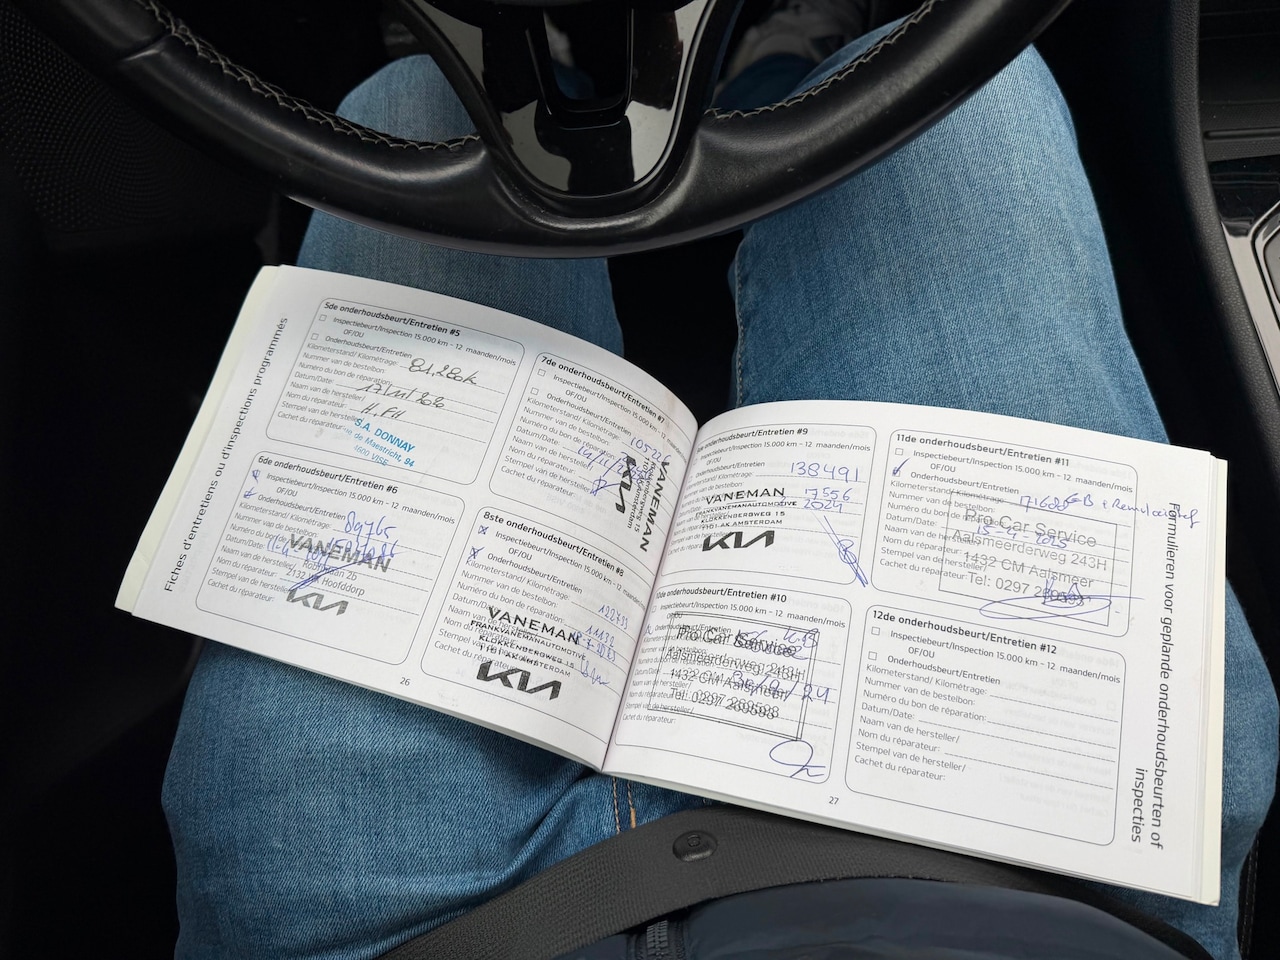 Fiches d'entretiens ou d'inspections programmés
5de onderhoudsbeurt/Entretien #5
Inspectiebeurt/Inspection 15.000 km - 12 maanden/mois
OF/OU
Onderhoudsbeurt/Entretien
Kilometerstand/ Kilométrage: 81.280k
Nummer van de bestelbon:
Numéro du bon de réparation:
Datum/Date: 17/11/2020
Naam van de hersteller/
Nom du réparateur:
Stempel van de hersteller/
Cachet du réparateur:
S.A. DONNAY
de Maestricht, 94
4600 VISE
6de onderhoudsbeurt/Entretien #6
Inspectiebeurt/Inspection 15.000 km - 12 maanden/mois
OF/OU
Onderhoudsbeurt/Entretien
Kilometerstand/ Kilométrage: 89765
Nummer van de bestelbon:
Numéro du bon de réparation:
Datum/Date:
Naam van de hersteller/
Nom du réparateur:
Stempel van de hersteller/
Cachet du réparateur:
VANEMAN
Hoofddorp
KIA
26
7de onderhoudsbeurt/Entretien #7
Inspectiebeurt/Inspection 15.000 km - 12 maanden/mois
OF/OU
Onderhoudsbeurt/Entretien
Kilometerstand/ Kilométrage: 105226
Nummer van de bestelbon:
Numéro du bon de réparation:
Datum/Date:
Naam van de hersteller/
Nom du réparateur:
Stempel van de hersteller/
Cachet du réparateur:
VANEMAN
Klokkenbergweg 15
Amsterdam
KIA
8ste onderhoudsbeurt/Entretien #8
Inspectiebeurt/Inspection 15.000 km - 12 maanden/mois
OF/OU
Onderhoudsbeurt/Entretien
Kilometerstand/ Kilométrage: 122433
Nummer van de bestelbon:
Numéro du bon de réparation:
Datum/Date:
Naam van de hersteller/
Nom du réparateur:
Stempel van de hersteller/
Cachet du réparateur:
VANEMAN
FRANKVANEMANAUTOMOTIVE
KLOKKENBERGWEG 15
1101 AK AMSTERDAM
KIA
onderhoudsbeurt/Entretien #9
Inspectiebeurt/Inspection 15.000 km - 12 maanden/mois
OF/OU
Onderhoudsbeurt/Entretien
Kilometerstand/ Kilométrage: 138491
Nummer van de bestelbon:
Numéro du bon de réparation: 17556
2024
VANEMAN
FRANKVANEMANAUTOMOTIVE
KLOKKENBERGWEG 15
1101 AK AMSTERDAM
KIA
onderhoudsbeurt/Entretien #10
Inspectiebeurt/Inspection 15.000 km - 12 maanden/mois
OF/OU
Onderhoudsbeurt/Entretien
Pro Car Service
Aalsmeerderweg 243H
1432 CM Aalsmeer
Tel: 0297
Stempel van de hersteller/
Cachet du réparateur:
27
11de onderhoudsbeurt/Entretien #11
Inspectiebeurt/Inspection 15.000 km - 12 maanden/mois
OF/OU
Onderhoudsbeurt/Entretien
Kilometerstand/ Kilométrage:
Nummer van de bestelbon:
Numéro du bon de réparation:
Datum/Date:
Naam van de hersteller/
Nom du réparateur:
Stempel van de hersteller/
Cachet du réparateur:
Pro Car Service
Aalsmeerderweg 243H
1432 CM Aalsmeer
Tel: 0297
12de onderhoudsbeurt/Entretien #12
Inspectiebeurt/Inspection 15.000 km - 12 maanden/mois
OF/OU
Onderhoudsbeurt/Entretien
Kilometerstand/ Kilométrage:
Nummer van de bestelbon:
Numéro du bon de réparation:
Datum/Date:
Naam van de hersteller/
Nom du réparateur:
Stempel van de hersteller/
Cachet du réparateur:
Formulieren voor geplande onderhoudsbeurten of
inspecties